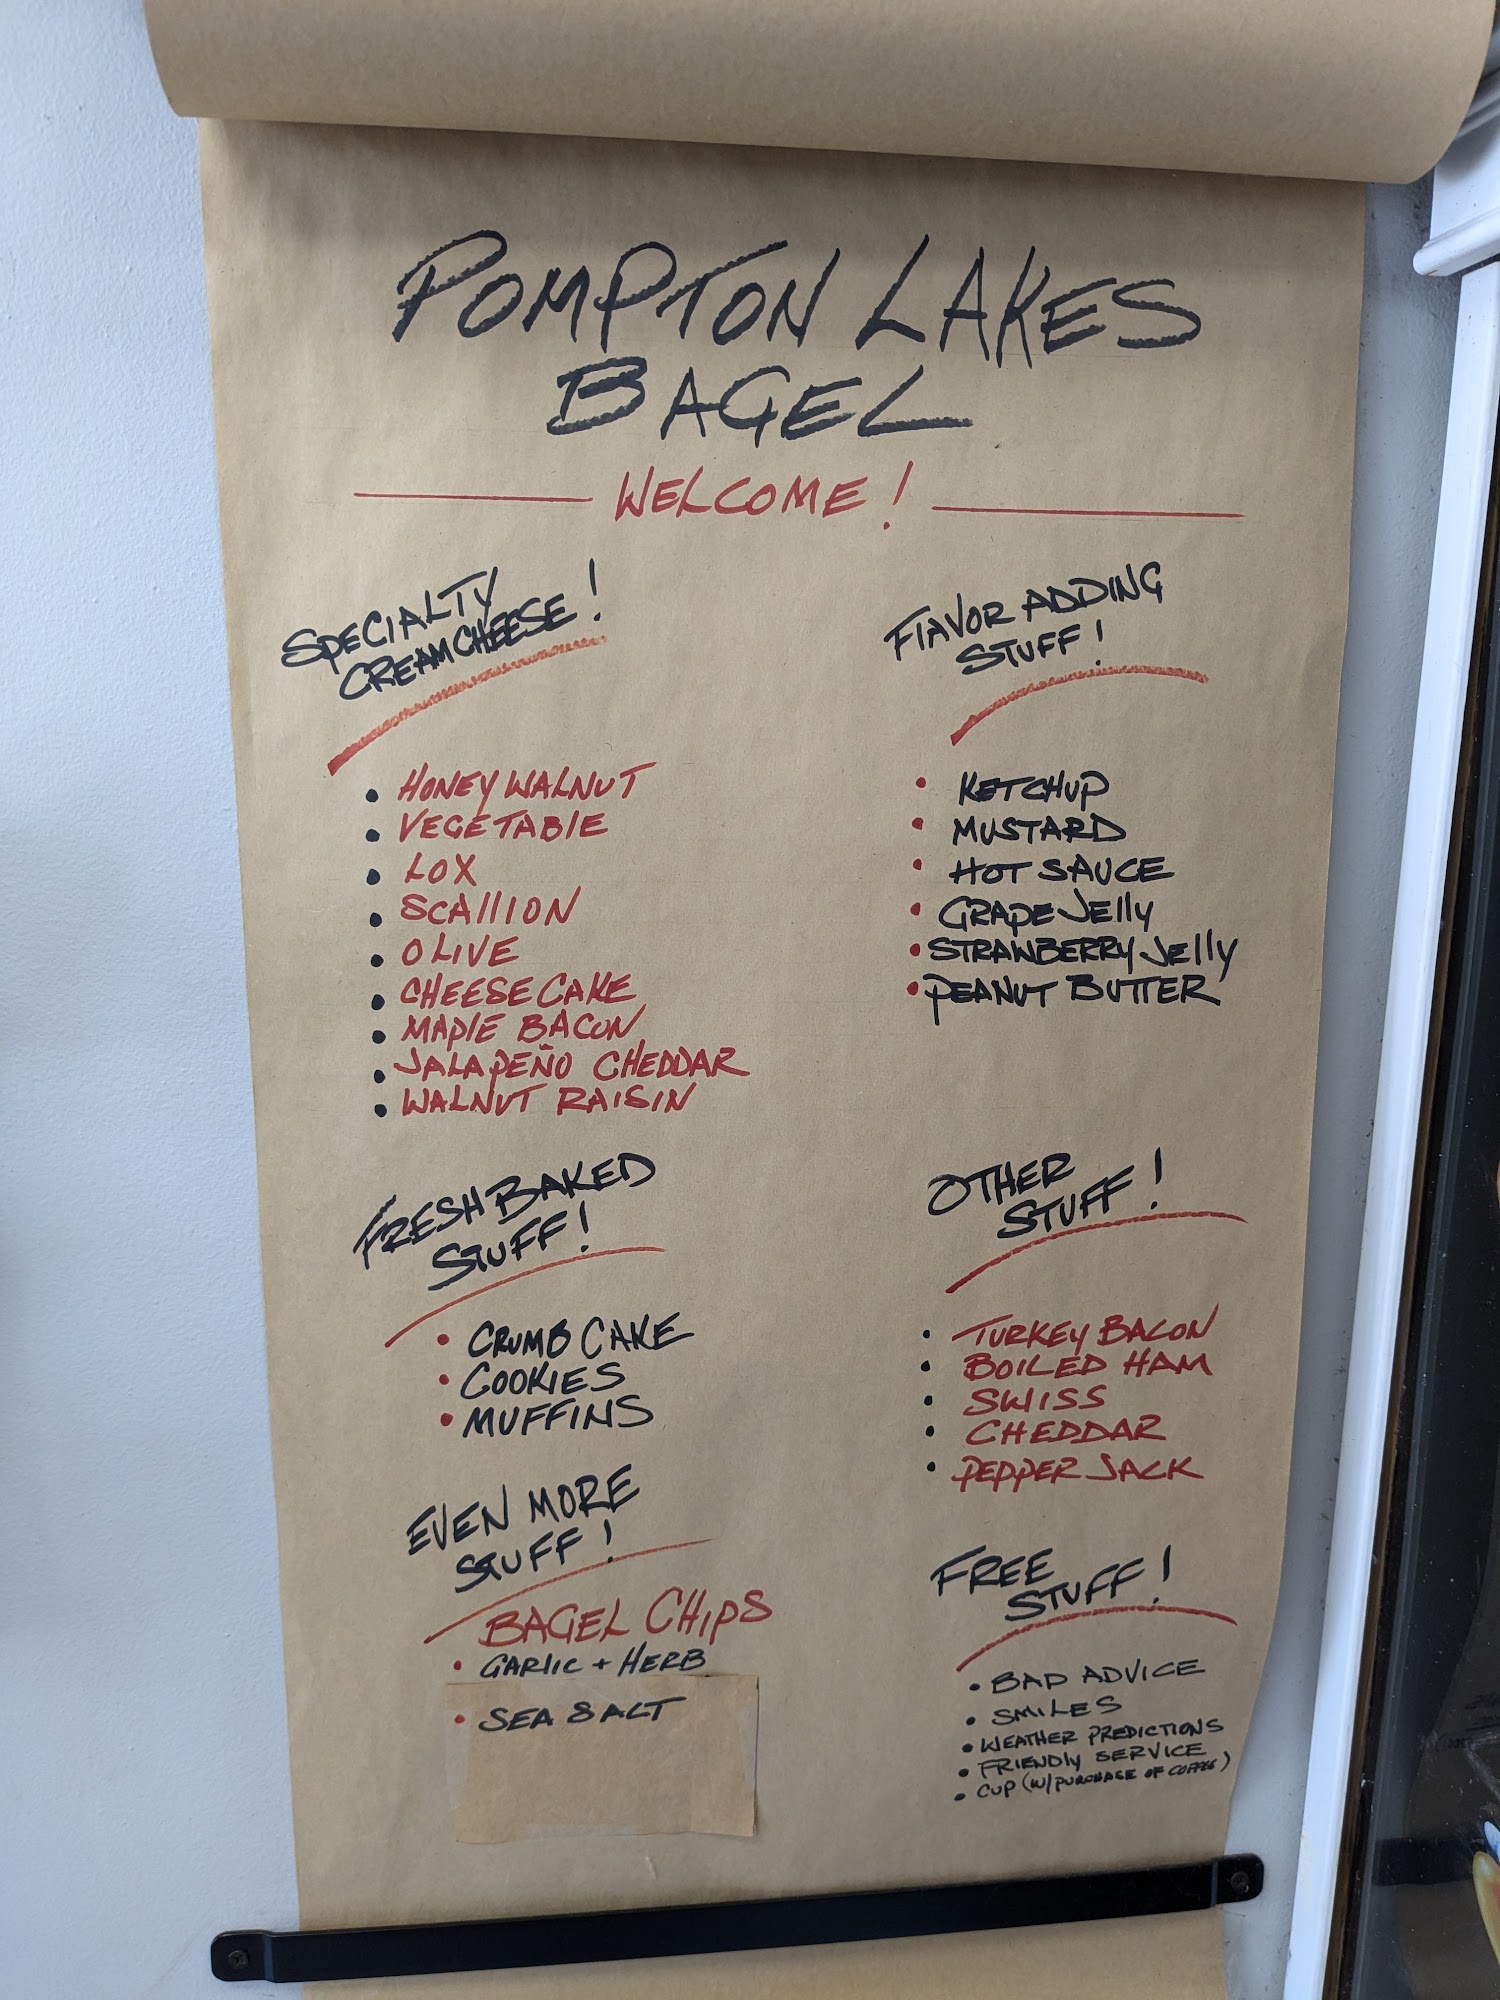 POMPTON LAKES
BAGEL
WELCOME!
SPECIALTY
CREAMCHEESE!
HONEY WALNUT
VEGETABLE
LOX
SCALLION
OLIVE
CHEESE CAKE
MAPLE BACON
JALAPEÑO CHEDDAR
WALNUT RAISIN
FRESH BAKED
STUFF!
CRUMB CAKE
COOKIES
MUFFINS
EVEN MORE
STUFF!
BAGEL CHIPS
GARLIC + HERB
SEA SALT
FLAVOR ADDING
STUFF!
KETCHUP
MUSTARD
HOT SAUCE
GRAPE JELLY
STRAWBERRY JELLY
PEANUT BUTTER
OTHER
STUFF!
TURKEY BACON
BOILED HAM
SWISS
CHEDDAR
PEPPER JACK
FREE
STUFF!
BAD ADVICE
SMILES
WEATHER PREDICTIONS
FRIENDLY SERVICE
CUP (W/PURCHASE OF COFFEE)